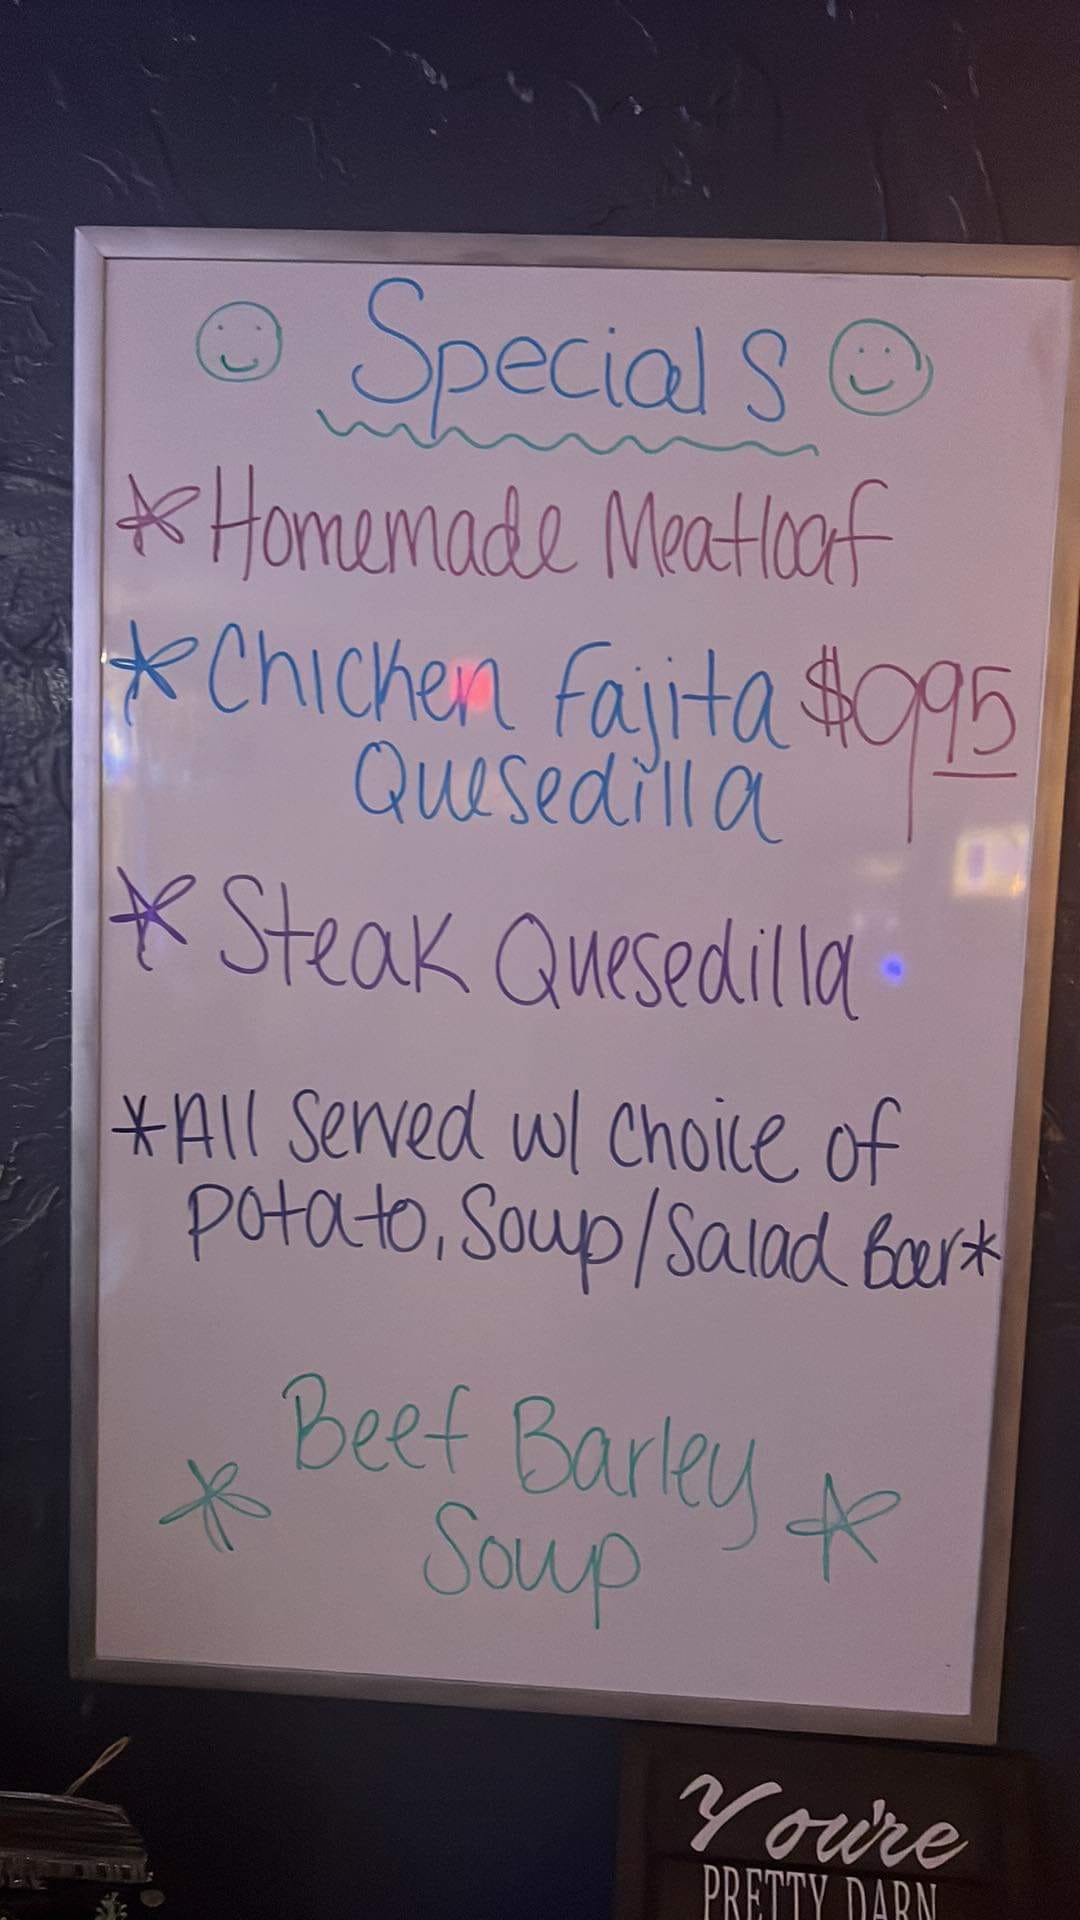 Specials
*Homemade Meatloaf
*Chicken Fajita $995
Quesedilla
*Steak Quesedilla
*All Served w/ choice of
potato, Soup/Salad Baer*
* Beef Barley *
Soup
You're
PRETTY DARN